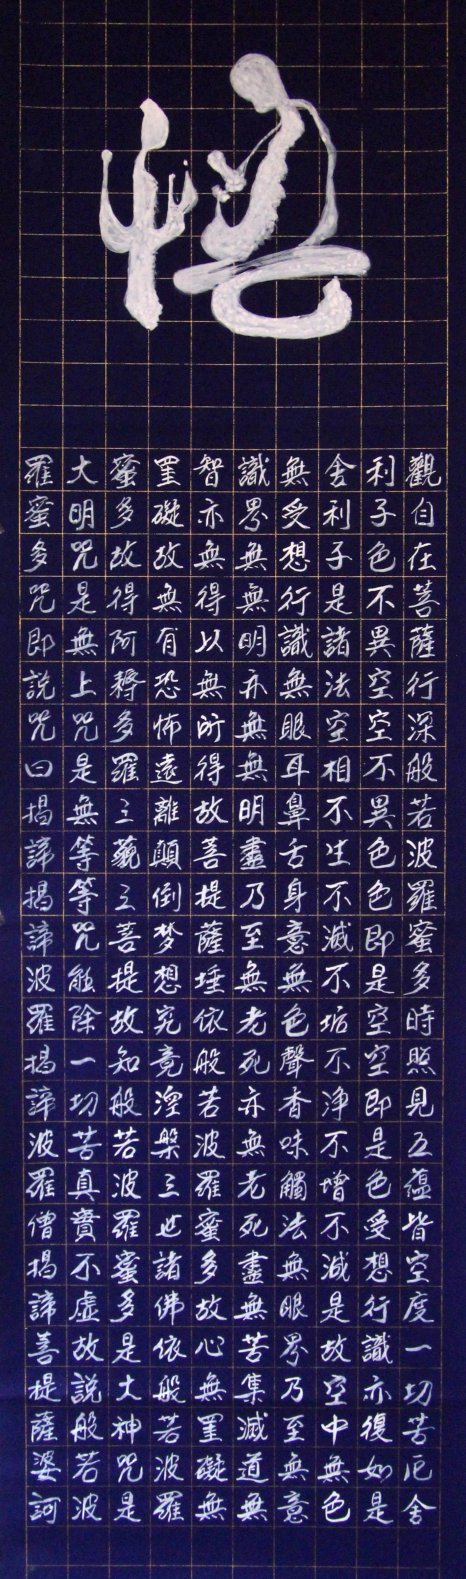 悟
觀自在菩薩行深般若波羅蜜多時照見五蘊皆空度一切苦厄舍
利子色不異空空不異色色即是空空即是色受想行識亦復如是
舍利子是諸法空相不生不滅不垢不淨不增不減是故空中無色
無受想行識無眼耳鼻舌身意無色聲香味觸法無眼界乃至無意
識界無無明亦無無明盡乃至無老死亦無老死盡無苦集滅道無
智亦無得以無所得故菩提薩埵依般若波羅蜜多故心無罣礙無
罣礙故無有恐怖遠離顛倒梦想究竟涅槃三世諸佛依般若波羅
蜜多故得阿耨多羅三藐三菩提故知般若波羅蜜多是大神咒是
大明咒是無上咒是無等等咒能除一切苦真實不虛故說般若波
羅蜜多咒即說咒曰揭諦揭諦波羅揭諦波羅僧揭諦菩提薩婆訶